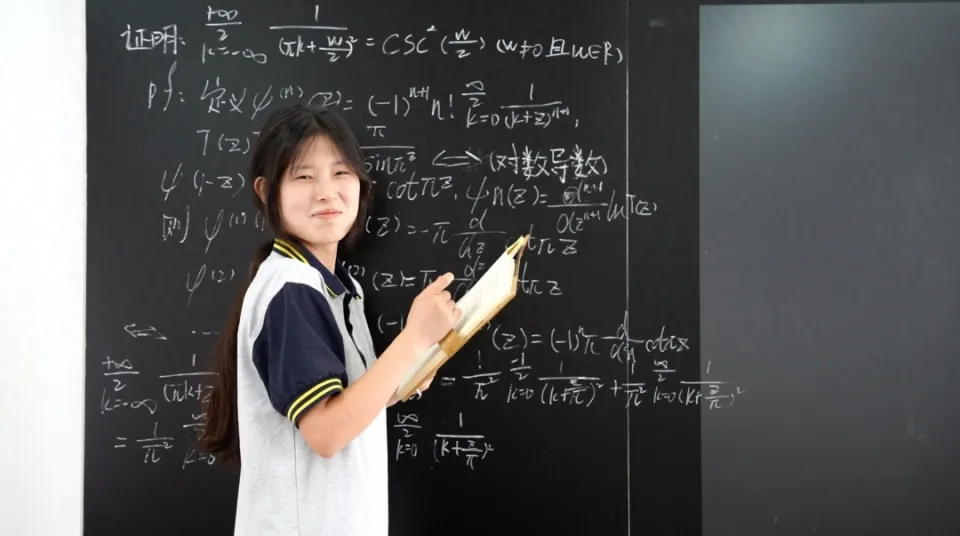 证明: +∞ Σ k=-∞ 1/(πk+w/2)² = CSC²(w/2) (w≠0且w∈R)
pf: 定义ψ⁽ⁿ⁾(z)= (-1)ⁿ⁺¹n! ∞ Σ k=0 1/(k+z)ⁿ⁺¹,
π/sinπz ⟺ (对数导数)
ψ(1-z) = cotπz, ψn(z)= dⁿ⁺¹/dzⁿ⁺¹ lnΓ(z)
则 ψ⁽¹⁾ (z)=-π d/dz tπz
ψ⁽²⁾ ⁽²⁾(z)=π tπz
⟺ ... (-1 (z)=(-1)ⁿπ d/dzⁿ cotπz
+∞ Σ k=-∞ 1/(πk+z = 1/π² -1 Σ k=0 1/(k+z/π)² + 1/π² ∞ Σ k=0 1/(k+z/π)²
= 1/π² ∞ Σ k=0 ∞ Σ k=0 1/(k+z/π)²